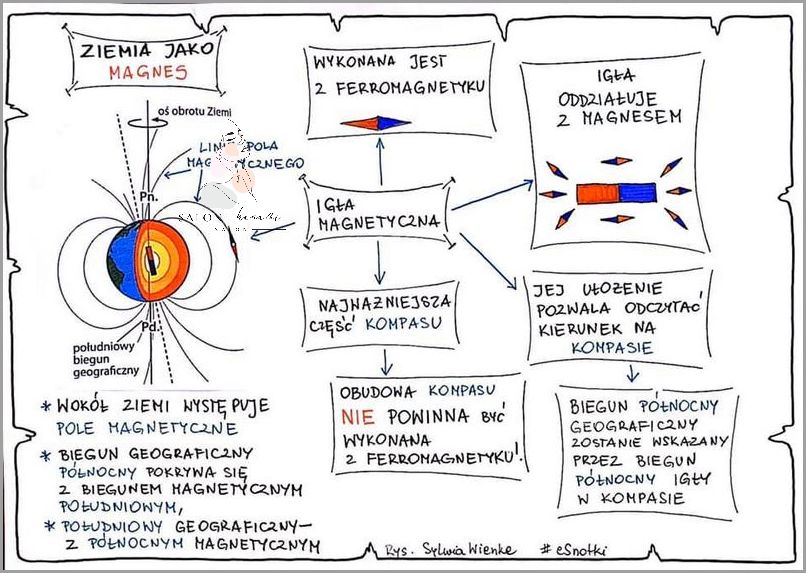 ZIEMIA JAKO
MAGNES
oś obrotu Ziemi
POLA
Pn.
Pd.
południowy
biegun
geograficzny
* WOKÓŁ ZIEMI WYSTĘPUJE
POLE MAGNETYCZNE
* BIEGUN GEOGRAFICZNY
PÓŁNOCNY POKRYWA SIĘ
Z BIEGUNEM MAGNETYCZNYM
POŁUDNIOWYM,
* POŁUDNIOWY GEOGRAFICZNY –
Z PÓŁNOCNYM MAGNETYCZNYM
WYKONANA JEST
Z FERROMAGNETYKU
IGŁA
MAGNETYCZNA
NAJWAŻNIEJSZA
CZĘŚĆ KOMPASU
OBUDOWA KOMPASU
NIE POWINNA BYĆ
WYKONANA
Z FERROMAGNETYKU!
IGŁA
ODDZIAŁUJE
Z MAGNESEM
JEJ UŁOŻENIE
POZWALA ODCZYTAĆ
KIERUNEK NA
KOMPASIE
BIEGUN PÓŁNOCNY
GEOGRAFICZNY
ZOSTANIE WSKAZANY
PRZEZ BIEGUN
PÓŁNOCNY IGŁY
W KOMPASIE
Rys. Sylwia Wienke #eSnotki